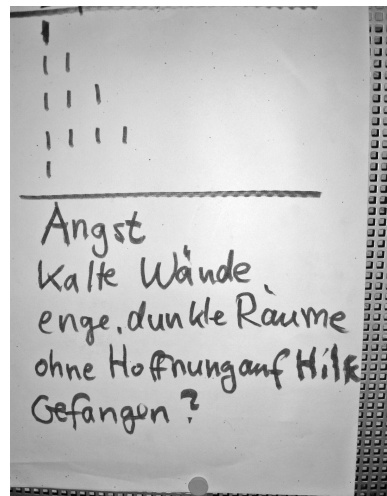 Angst
Kalte Wände
enge, dunkle Räume
ohne Hoffnung auf Hilfe
Gefangen?